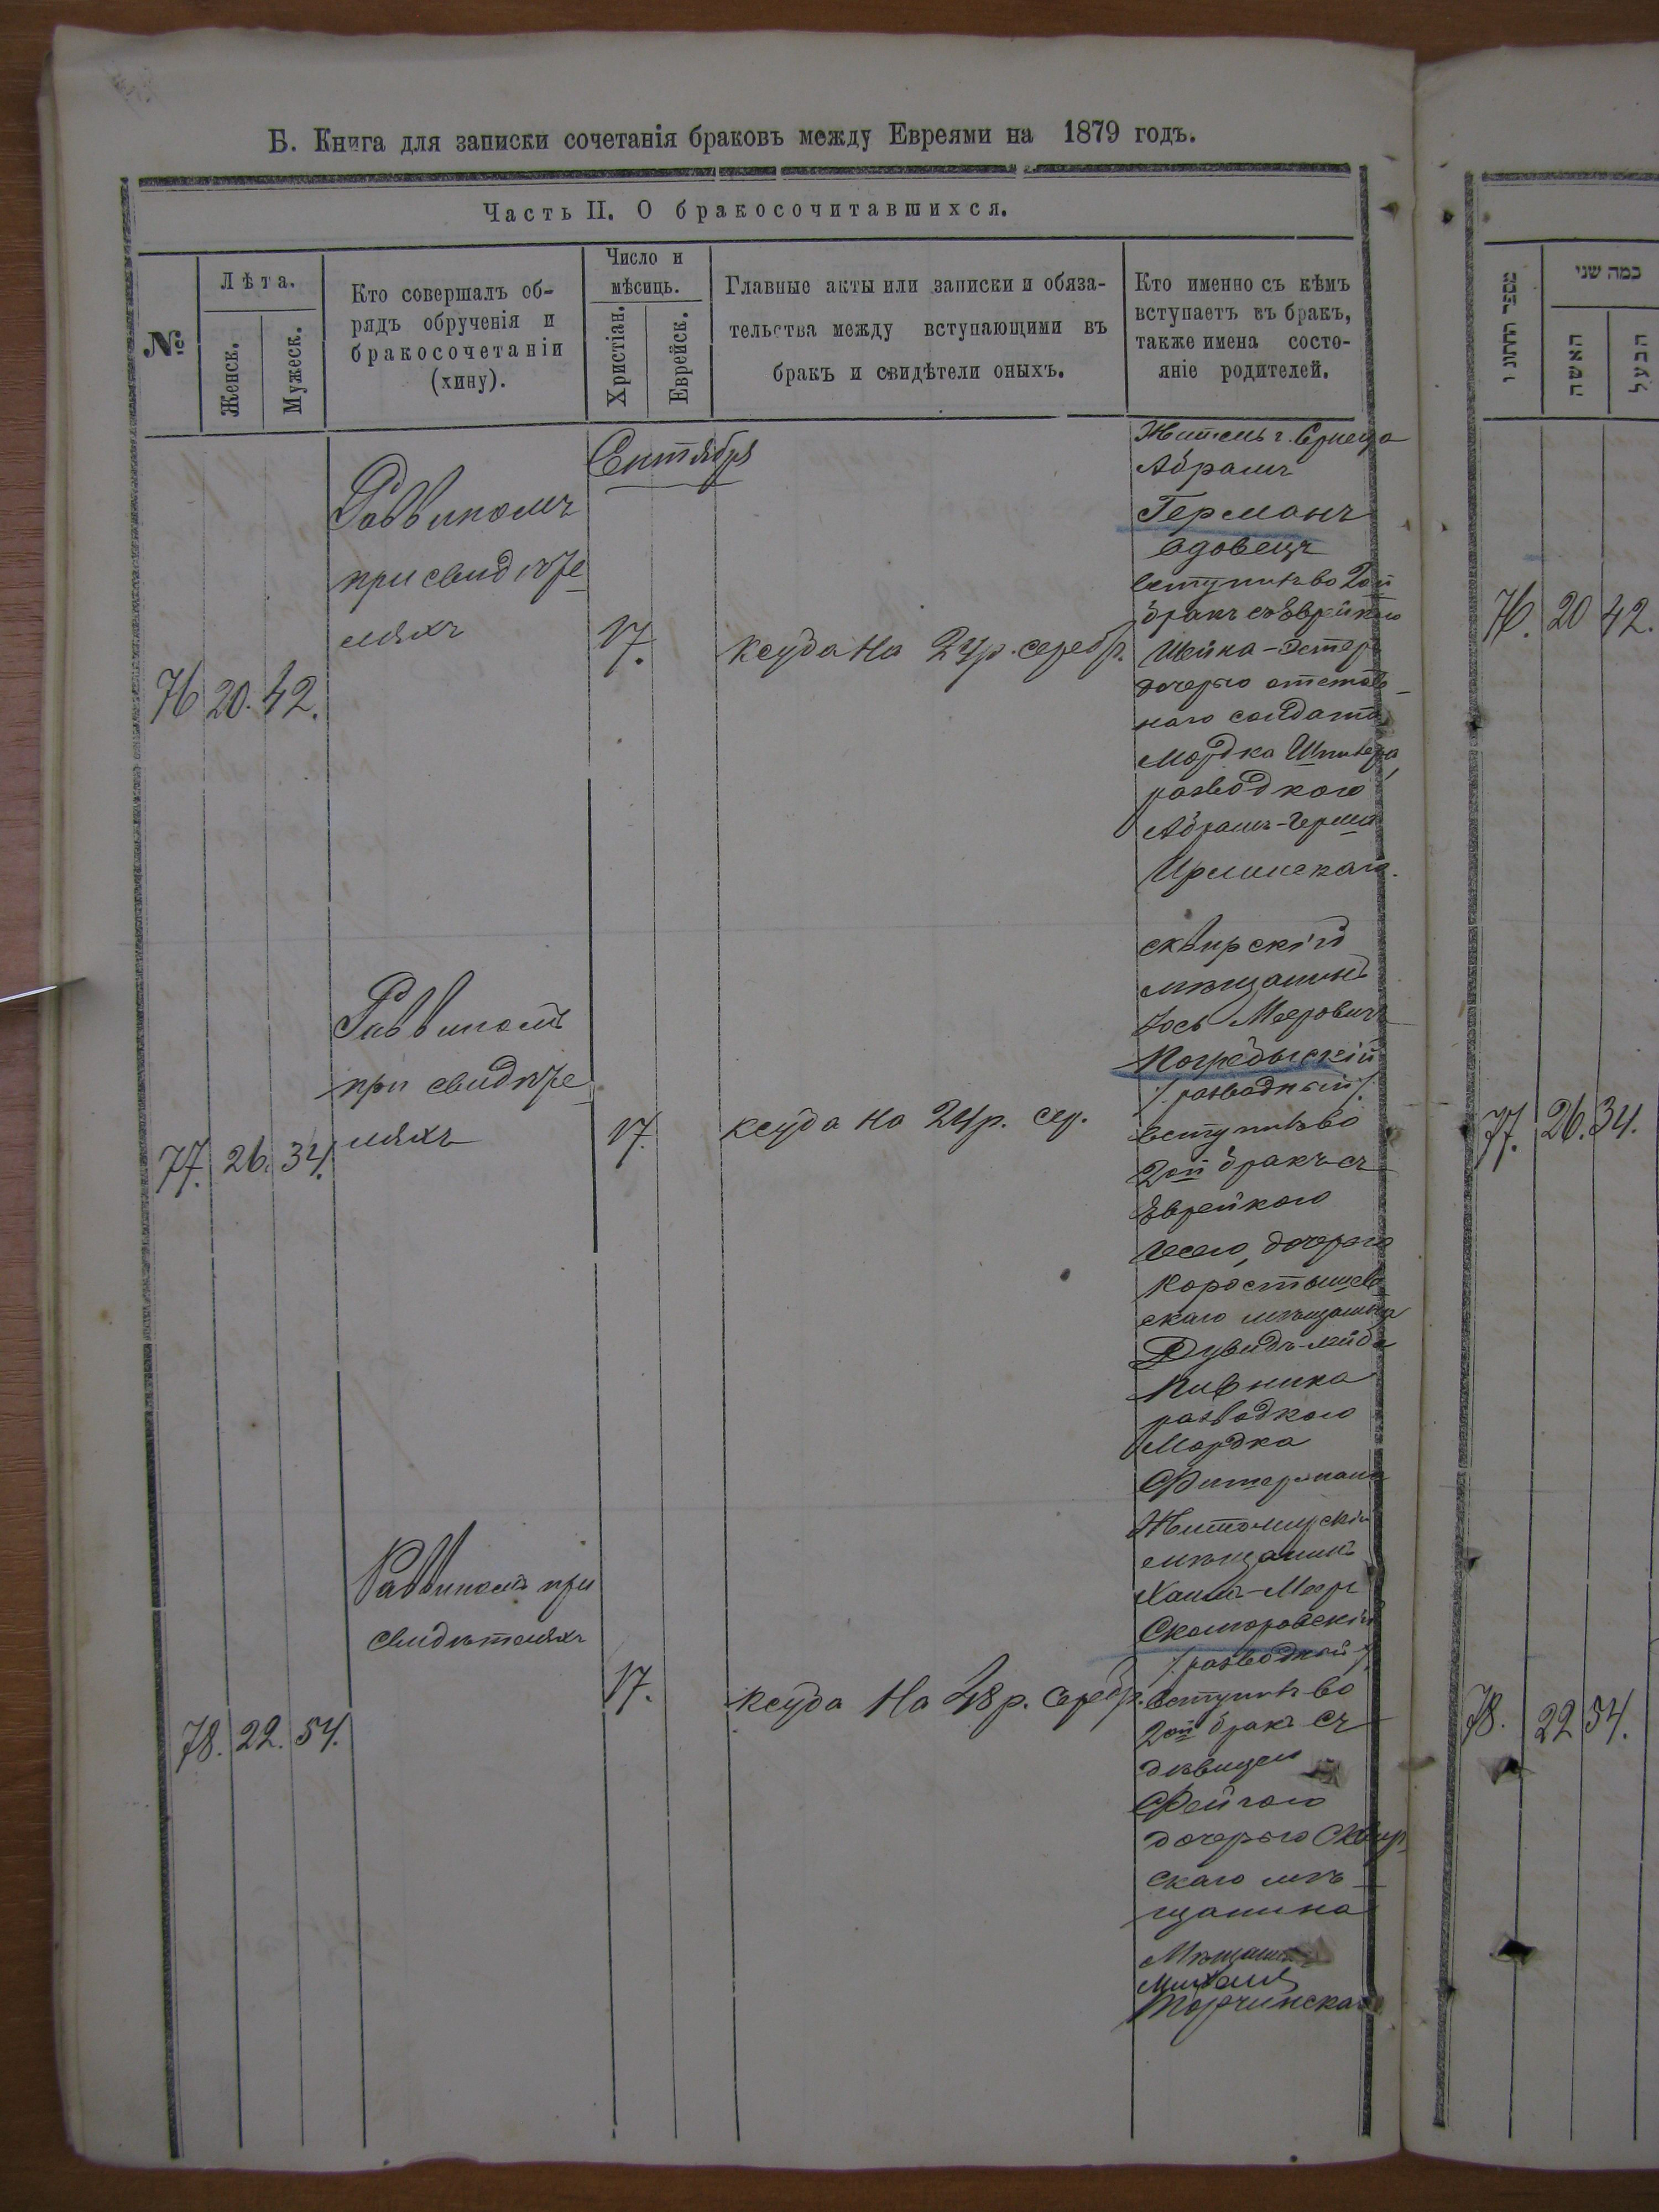 Б. Книга для записки сочетанія браковъ между Евреями на 1879 годъ.
Часть II. О бракосочитавшихся.
№
Лѣта.
Женск.
Мужеск.
Кто совершалъ об-
рядъ обрученія и
бракосочетаніи
(хину).
Число и
мѣсяць.
Христіан.
Еврейск.
Главные акты или записки и обяза-
тельства между вступающими въ
бракъ и свидѣтели оныхъ.
Кто именно съ кѣмъ
вступаетъ въ бракъ,
также имена состо-
яніе родителей.
מספר החתונו
כמה שני
האשה
הבעל
Сентября
76 20. 42.
Раввиномъ
при свидѣте
ляхъ
17.
ксуба на 24 р. серебр.
Житель г.
Абрамъ
Германъ
вдовецъ
вступилъ во 2ой
бракъ съ Еврейкою
Шейна-Эстеръ
дочерью отстав
наго солдата
Мордка
разводкою
Абрамъ-Герша
76. 20 42.
77. 26. 34.
Раввиномъ
при свидѣте
ляхъ
17.
ксуба на 24 р. сер.
сквирскій
мѣщанинъ
Іось Мееровичъ
Погребыскій
/: разводный :/
вступилъ во
2ой бракъ съ
Еврейкою
дочерью
Коростышев
скаго мѣщанина
Дувидъ-Лейба
Пивника
разводкою
Мордка
Фитермана
77. 26. 34.
78. 22. 54.
Раввиномъ при
свидѣтеляхъ
17.
ксуба на 48 р. серебр.
Житомирскій
мѣщанинъ
Хаимъ-Мееръ
Скоморовскій
/: разводный :/
вступилъ во
2ой бракъ съ
дѣвицею
Фейгою
дочерью Сквир
скаго мѣ
щанина
Торчинскаго
78. 22 54.